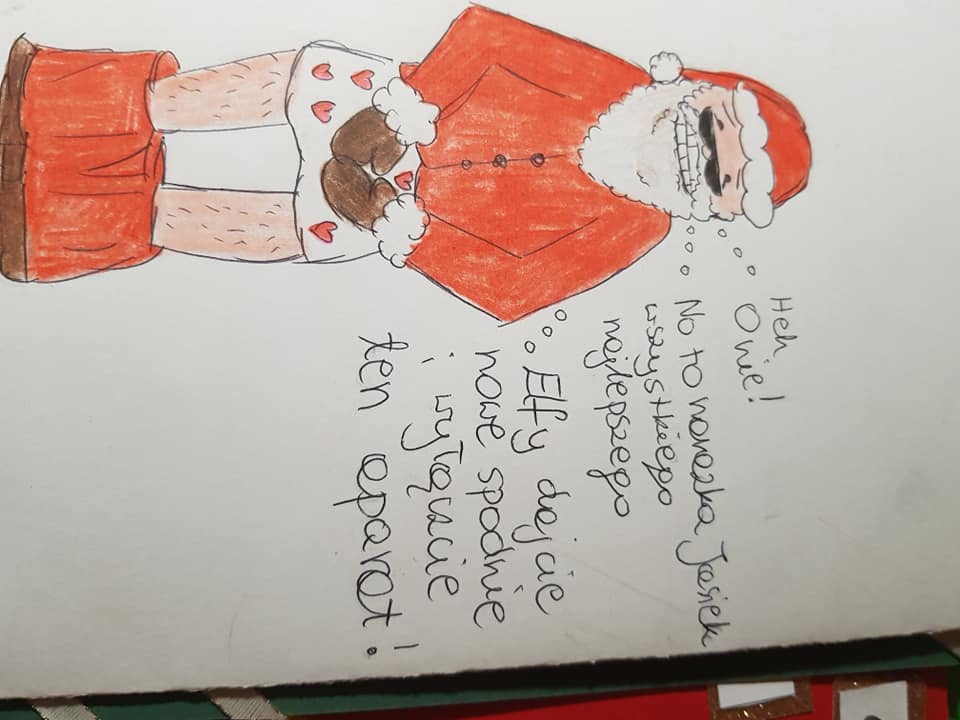 Heh,
O nie!
No to noreczka Jasiek
wszystkiego
najlepszego
Elfy dajcie
nowe spodnie
i wyłączcie
ten aparat!